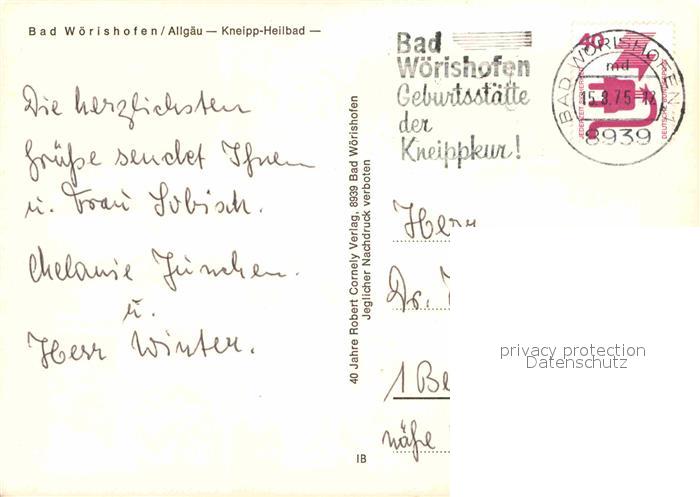 Bad Wörishofen/Allgäu — Kneipp-Heilbad —
Die herzlichsten
Grüße sendet Ihnen
u. Frau
Melanie
u.
Herr Winter.
40 Jahre Robert Cornely Verlag, 8939 Bad Wörishofen
Jeglicher Nachdruck verboten
IB
Bad
Wörishofen
Geburtsstätte
der
Kneippkur!
40
JEDERZEIT SICHERHEIT
DEUTSCHE BUNDESPOST
BAD WÖRISHOFEN 1
md
8.75
8939
Herrn
Dr.
1 Be
nähe
privacy protection
Datenschutz